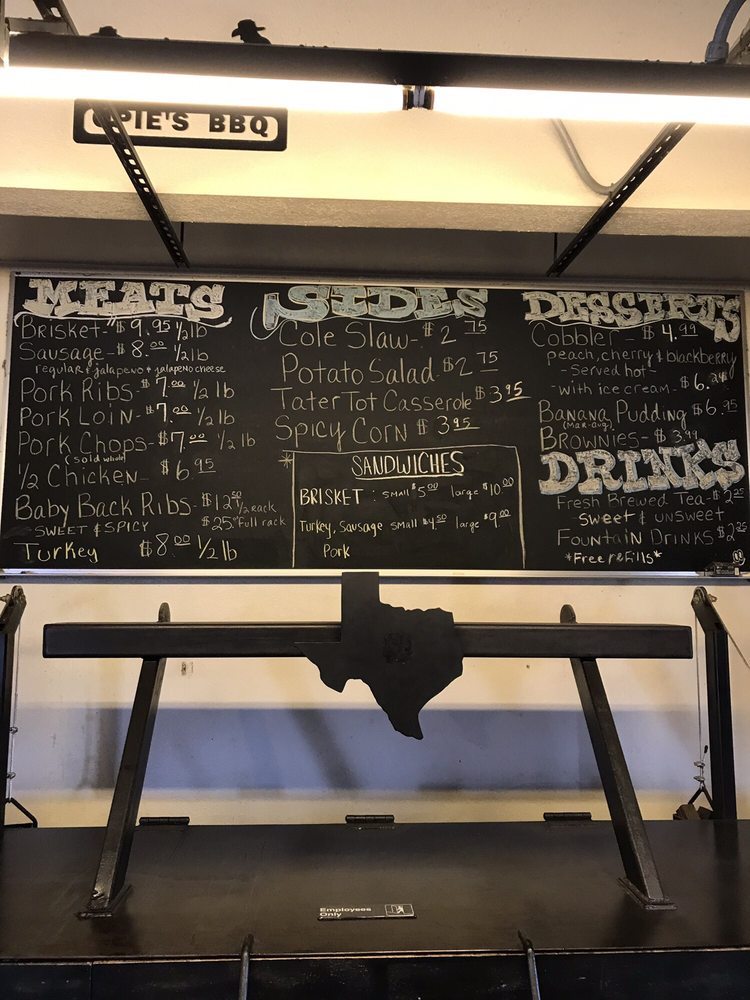 OPIE'S BBQ
MEATS
Brisket - $9.95 1/2 lb
Sausage - $8.00 1/2 lb
regular & jalapeno & jalapeno cheese
Pork Ribs - $7.00 1/2 lb
Pork Loin - $7.00 1/2 lb
Pork Chops - $7.00 1/2 lb
(sold whole)
1/2 Chicken - $6.95
Baby Back Ribs - $12.50 1/2 rack
SWEET & SPICY $25.00 full rack
Turkey $8.00 1/2 lb
SIDES
Cole Slaw - $2.75
Potato Salad - $2.75
Tater Tot Casserole $3.95
Spicy Corn $3.95
* SANDWICHES
BRISKET: small $5.00 large $10.00
Turkey, Sausage small $4.50 large $9.00
Pork
DESSERTS
Cobbler - $4.99
peach, cherry & blackberry
- Served hot -
- with ice cream - $6.24
Banana Pudding $6.95
(Mar-Aug)
Brownies - $3.99
DRINKS
Fresh Brewed Tea - $2.25
sweet & unsweet
Fountain Drinks $2.25
*Free refills*
Employees
Only